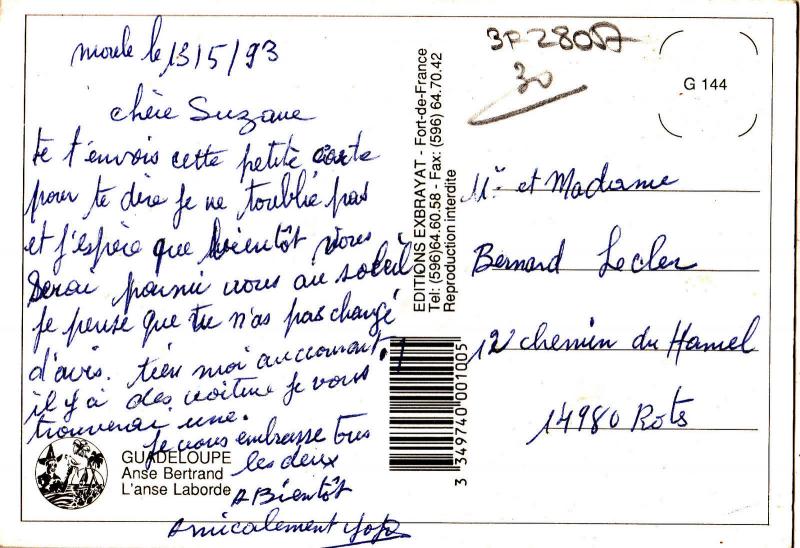 moule le 13/5/93
chère Suzane
Je t'envois cette petite carte
pour te dire je ne t'oublie pas
et j'espère que bientôt vous
serai parmi vous au soleil
je pense que tu n'as pas changé
d'avis. tien moi au courant !
il y a des voiture je vous
trouverai une.
je vous embrasse tous
les deux
A Bientôt
Amicalement
GUADELOUPE
Anse Bertrand
L'anse Laborde
EDITIONS EXBRAYAT - Fort-de-France
Tel: (596)64.60.58 - Fax: (596) 64.70.42
Reproduction interdite
3 349740 001005
30
G 144
Mr et Madame
Bernard Lecler
12 chemin du Hamel
14980 Rots